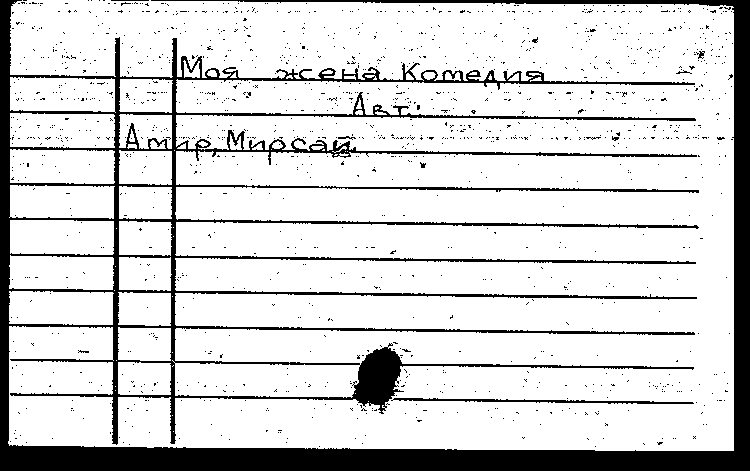 Моя жена. Комедия
Авт.:
Амир, Мирсай.